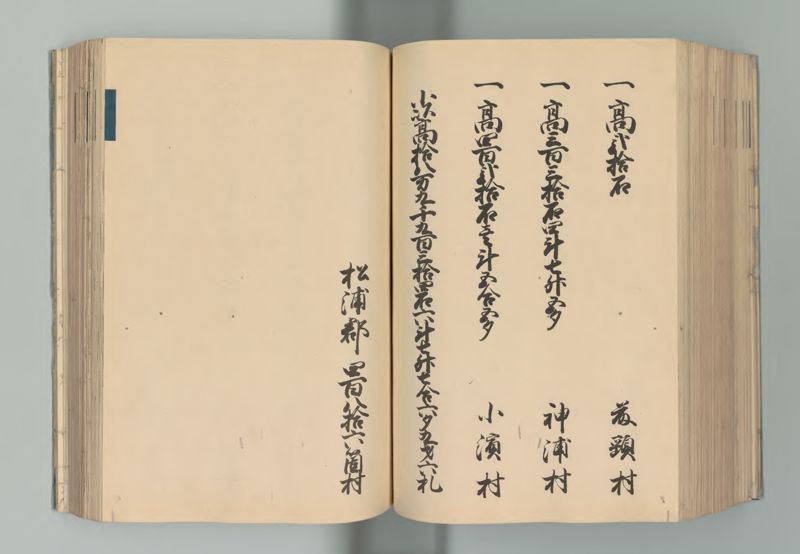 一高弐拾石 村
一高三百三拾石四斗七升五夕 神浦村
一高四百弐拾石壱斗五合五夕 小濱村
小以高拾八万九千九百三拾四石六斗七升七合六夕九才六札
松浦郡 四百八拾六箇村